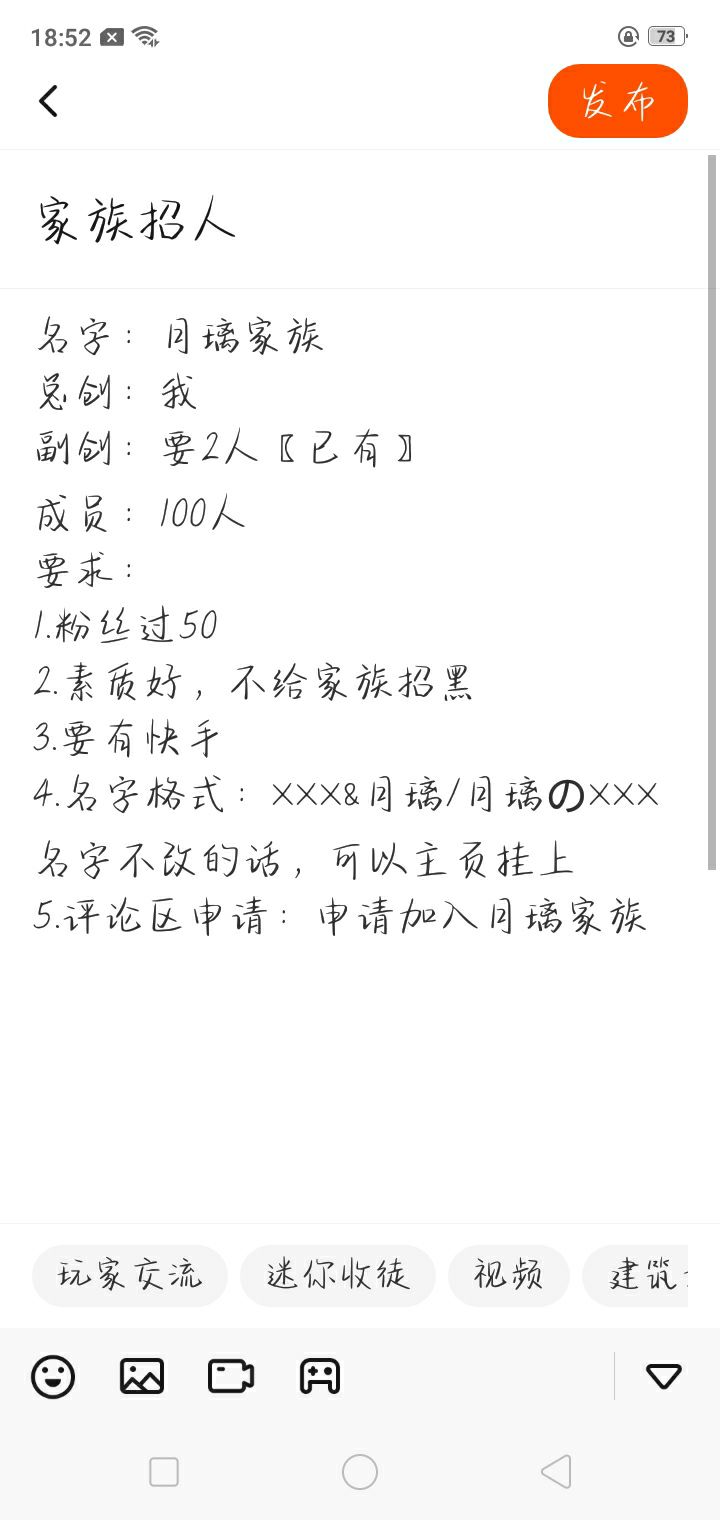 18:52
73
发布
家族招人
名字：月璃家族
总创：我
副创：要2人〖已有〗
成员：100人
要求：
1.粉丝过50
2.素质好，不给家族招黑
3.要有快手
4.名字格式：×××&月璃/月璃の×××
名字不改的话，可以主页挂上
5.评论区申请：申请加入月璃家族
玩家交流 迷你收徒 视频 建筑